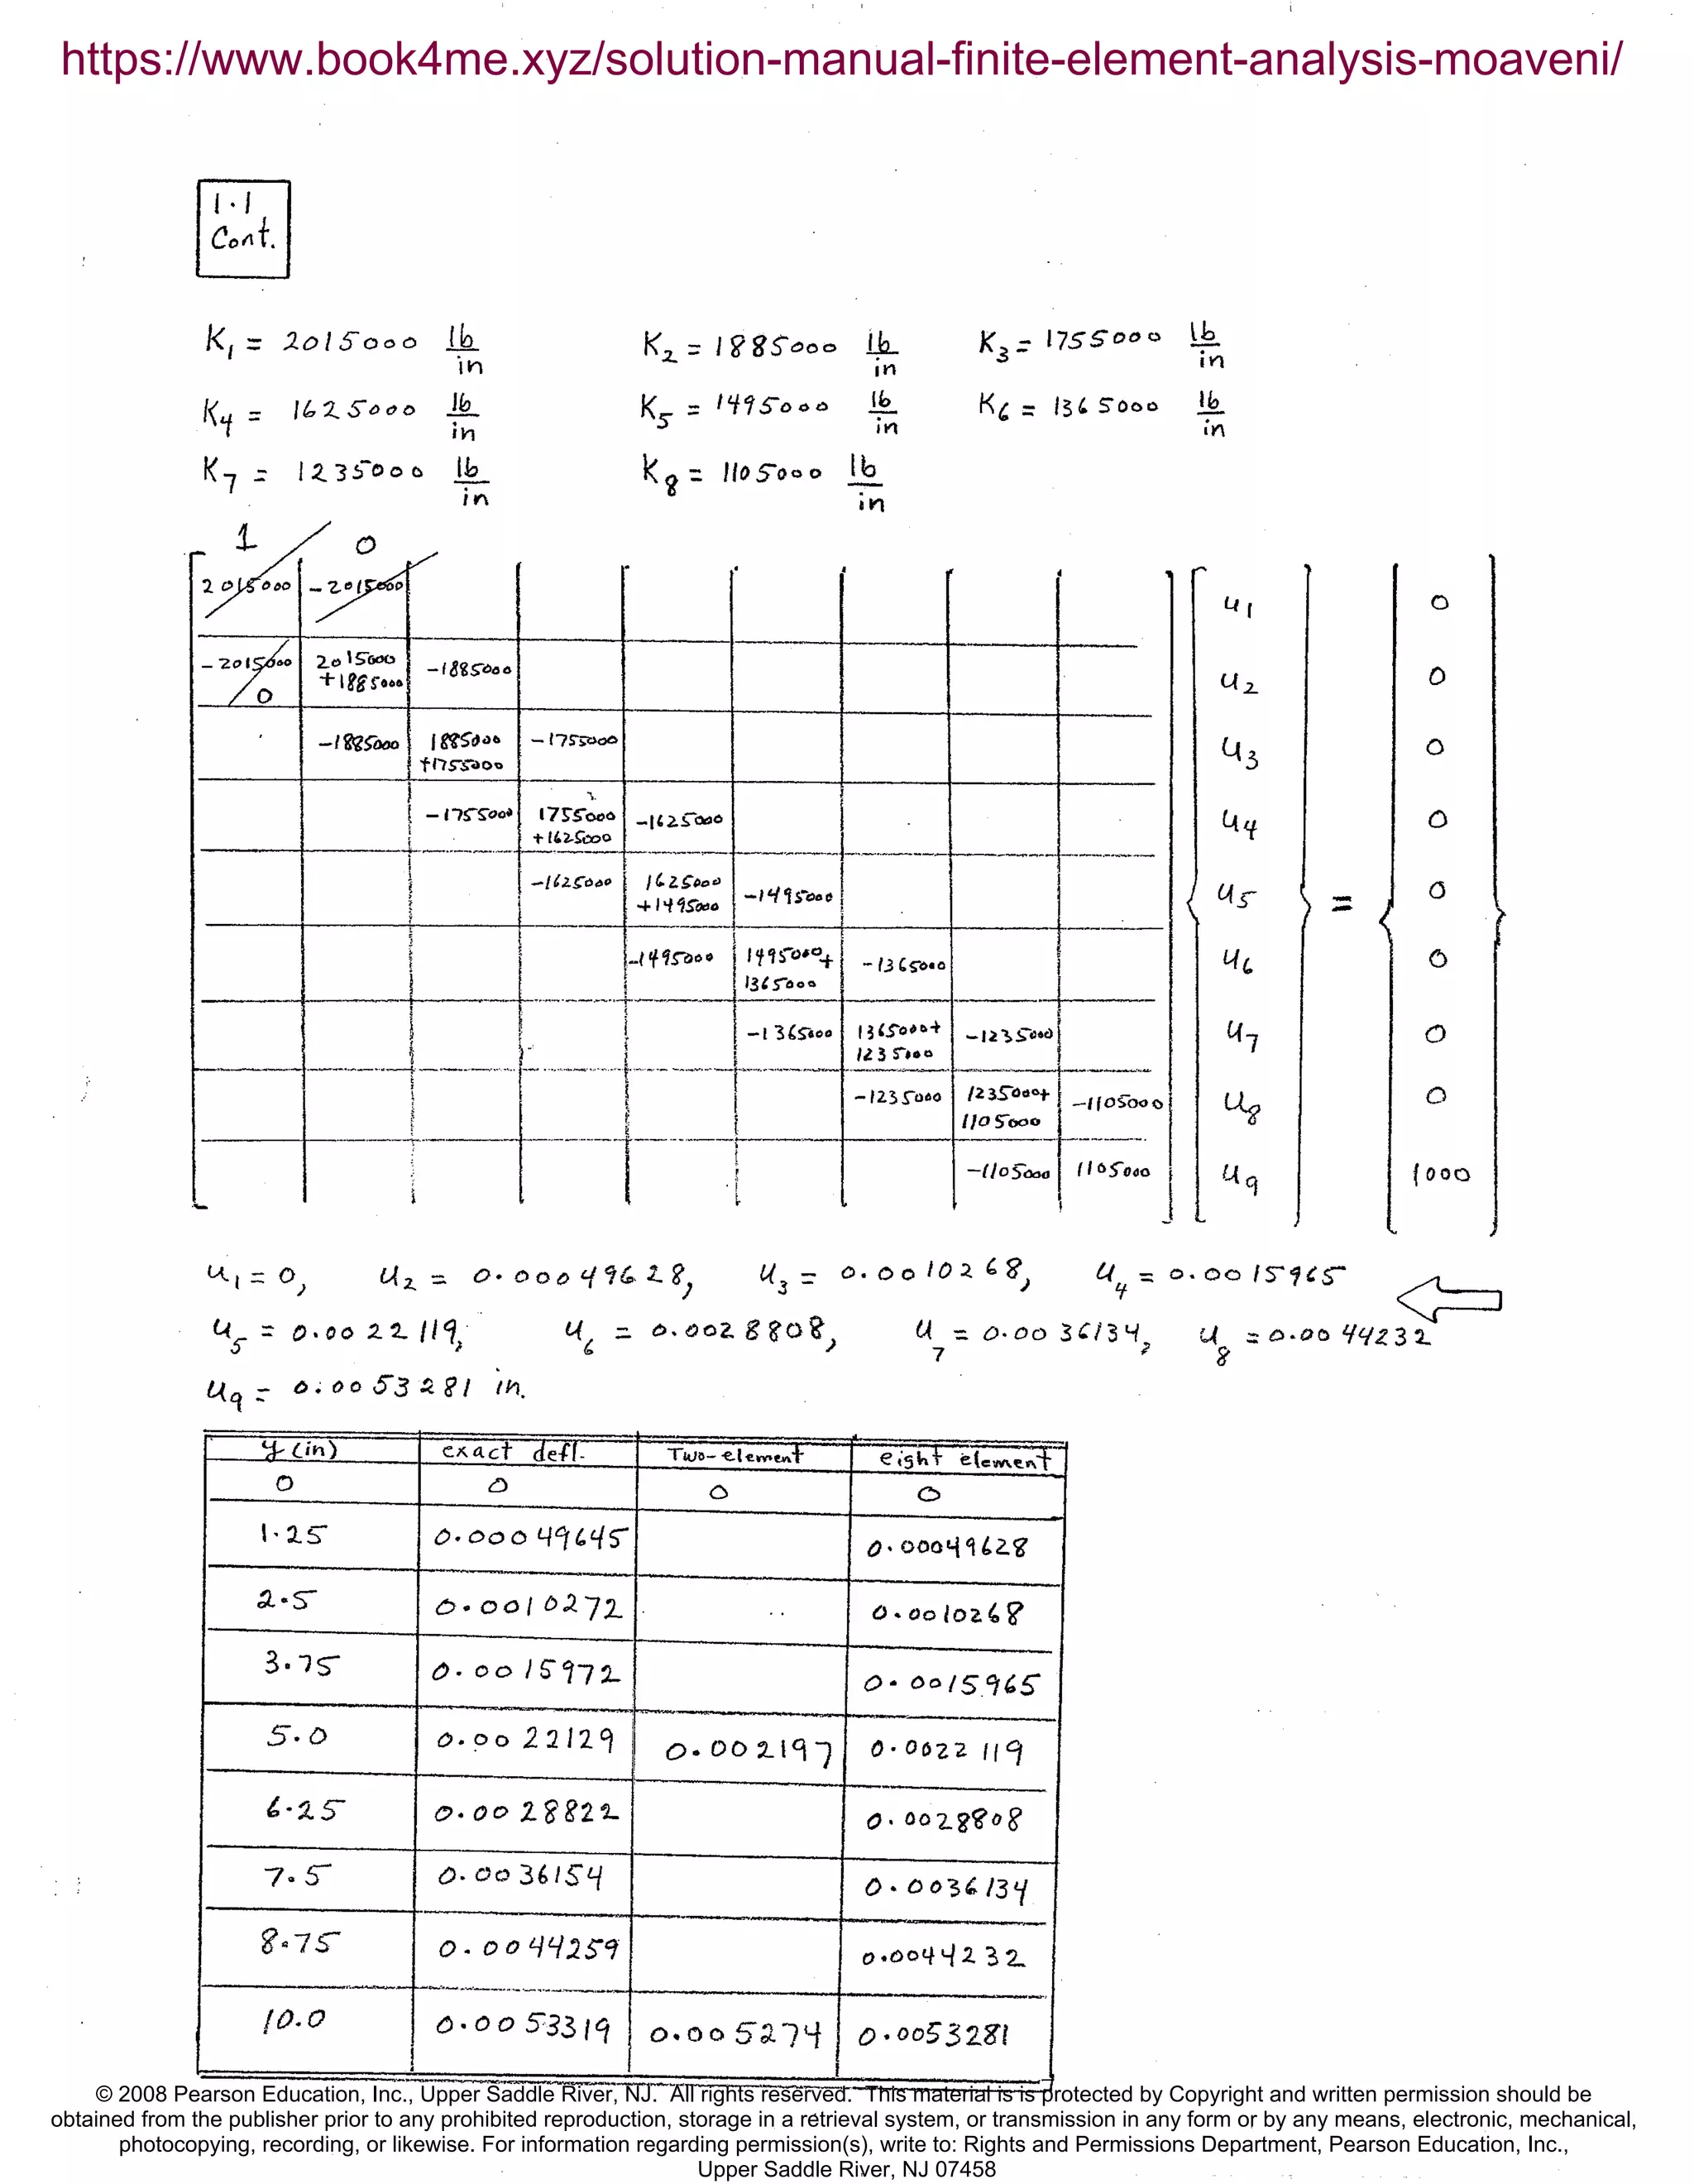 https://www.book4me.xyz/solution-manual-finite-element-analysis-moaveni/
1.1
Cont.
K1 = 2015000 lb/in K2 = 1885000 lb/in K3 = 1755000 lb/in
K4 = 1625000 lb/in K5 = 1495000 lb/in K6 = 1365000 lb/in
K7 = 1235000 lb/in K8 = 1105000 lb/in
1 0
2015000 -2015000 u1 0
-2015000 2015000 -1885000 u2 0
0 +1885000
-1885000 1885000 -1755000 u3 0
+1755000
-1755000 1755000 -1625000 u4 0
+1625000
-1625000 1625000 -1495000 u5 = 0
+1495000
-1495000 1495000+ -1365000 u6 0
1365000
-1365000 1365000+ -1235000 u7 0
1235000
-1235000 1235000+ -1105000 u8 0
1105000
-1105000 1105000 u9 1000
u1 = 0, u2 = 0.00049628, u3 = 0.0010268, u4 = 0.0015965
u5 = 0.0022119, u6 = 0.0028808, u7 = 0.0036134, u8 = 0.0044232
u9 = 0.0053281 in.
y (in) exact defl. Two-element eight element
0 0 0 0
1.25 0.00049645 0.00049628
2.5 0.0010272 0.0010268
3.75 0.0015972 0.0015965
5.0 0.0022129 0.002197 0.0022119
6.25 0.0028822 0.0028808
7.5 0.0036154 0.0036134
8.75 0.0044259 0.0044232
10.0 0.0053319 0.005274 0.0053281
© 2008 Pearson Education, Inc., Upper Saddle River, NJ. All rights reserved. This material is is protected by Copyright and written permission should be
obtained from the publisher prior to any prohibited reproduction, storage in a retrieval system, or transmission in any form or by any means, electronic, mechanical,
photocopying, recording, or likewise. For information regarding permission(s), write to: Rights and Permissions Department, Pearson Education, Inc.,
Upper Saddle River, NJ 07458